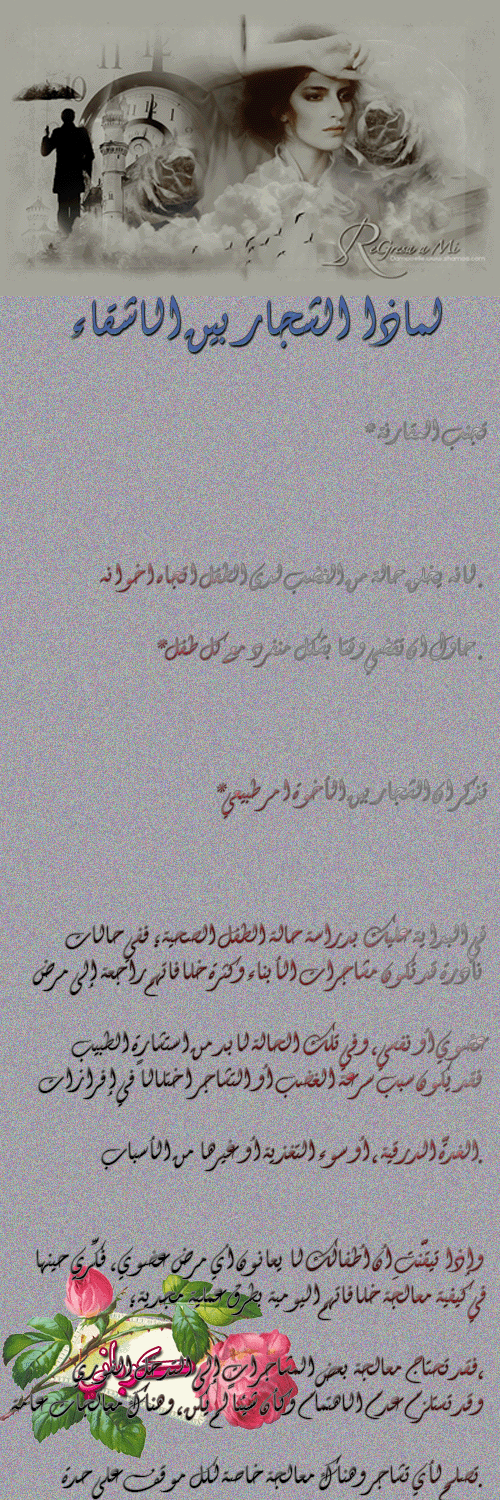 ReGresa a Mi
لماذا الشجار بين الاشقاء
تجنب المقارنة*
.لانه يخلق حالة من الغضب لدى الطفل اتجاه اخوانه
.حاول ان تقضي وقتا بشكل منفرد مع كل طفل*
تذكر ان الشجار بين الأخوة امر طبيعي*
في البداية عليك بدراسة حالة الطفل الصحية، ففي حالات
نادرة قد تكون مشاجرات الأبناء وكثرة خلافاتهم راجعة إلى مرض
عضوي أو نفسي، وفي تلك الحالة لا بد من استشارة الطبيب
فقد يكون سبب سرعة الغضب أو التشاجر اختلالا في إفرازات
.الغدّة الدرقية، أو سوء التغذية أو غيرها من الأسباب
وإذا تيقَّنتِ أن أطفالك لا يعانون أي مرض عضوي، فكِّري حينها
في كيفية معالجة خلافاتهم اليومية بطرق عملية مجدية؛
،فقد تحتاج معالجة بعض المشاجرات إلى التدخل الفوري
وقد تستلزم عدم الاهتمام وكأن شيئا لم يكن، وهناك معالجات عامة
.تصلح لأي تشاجر وهناك معالجة خاصة لكل موقف على حدة